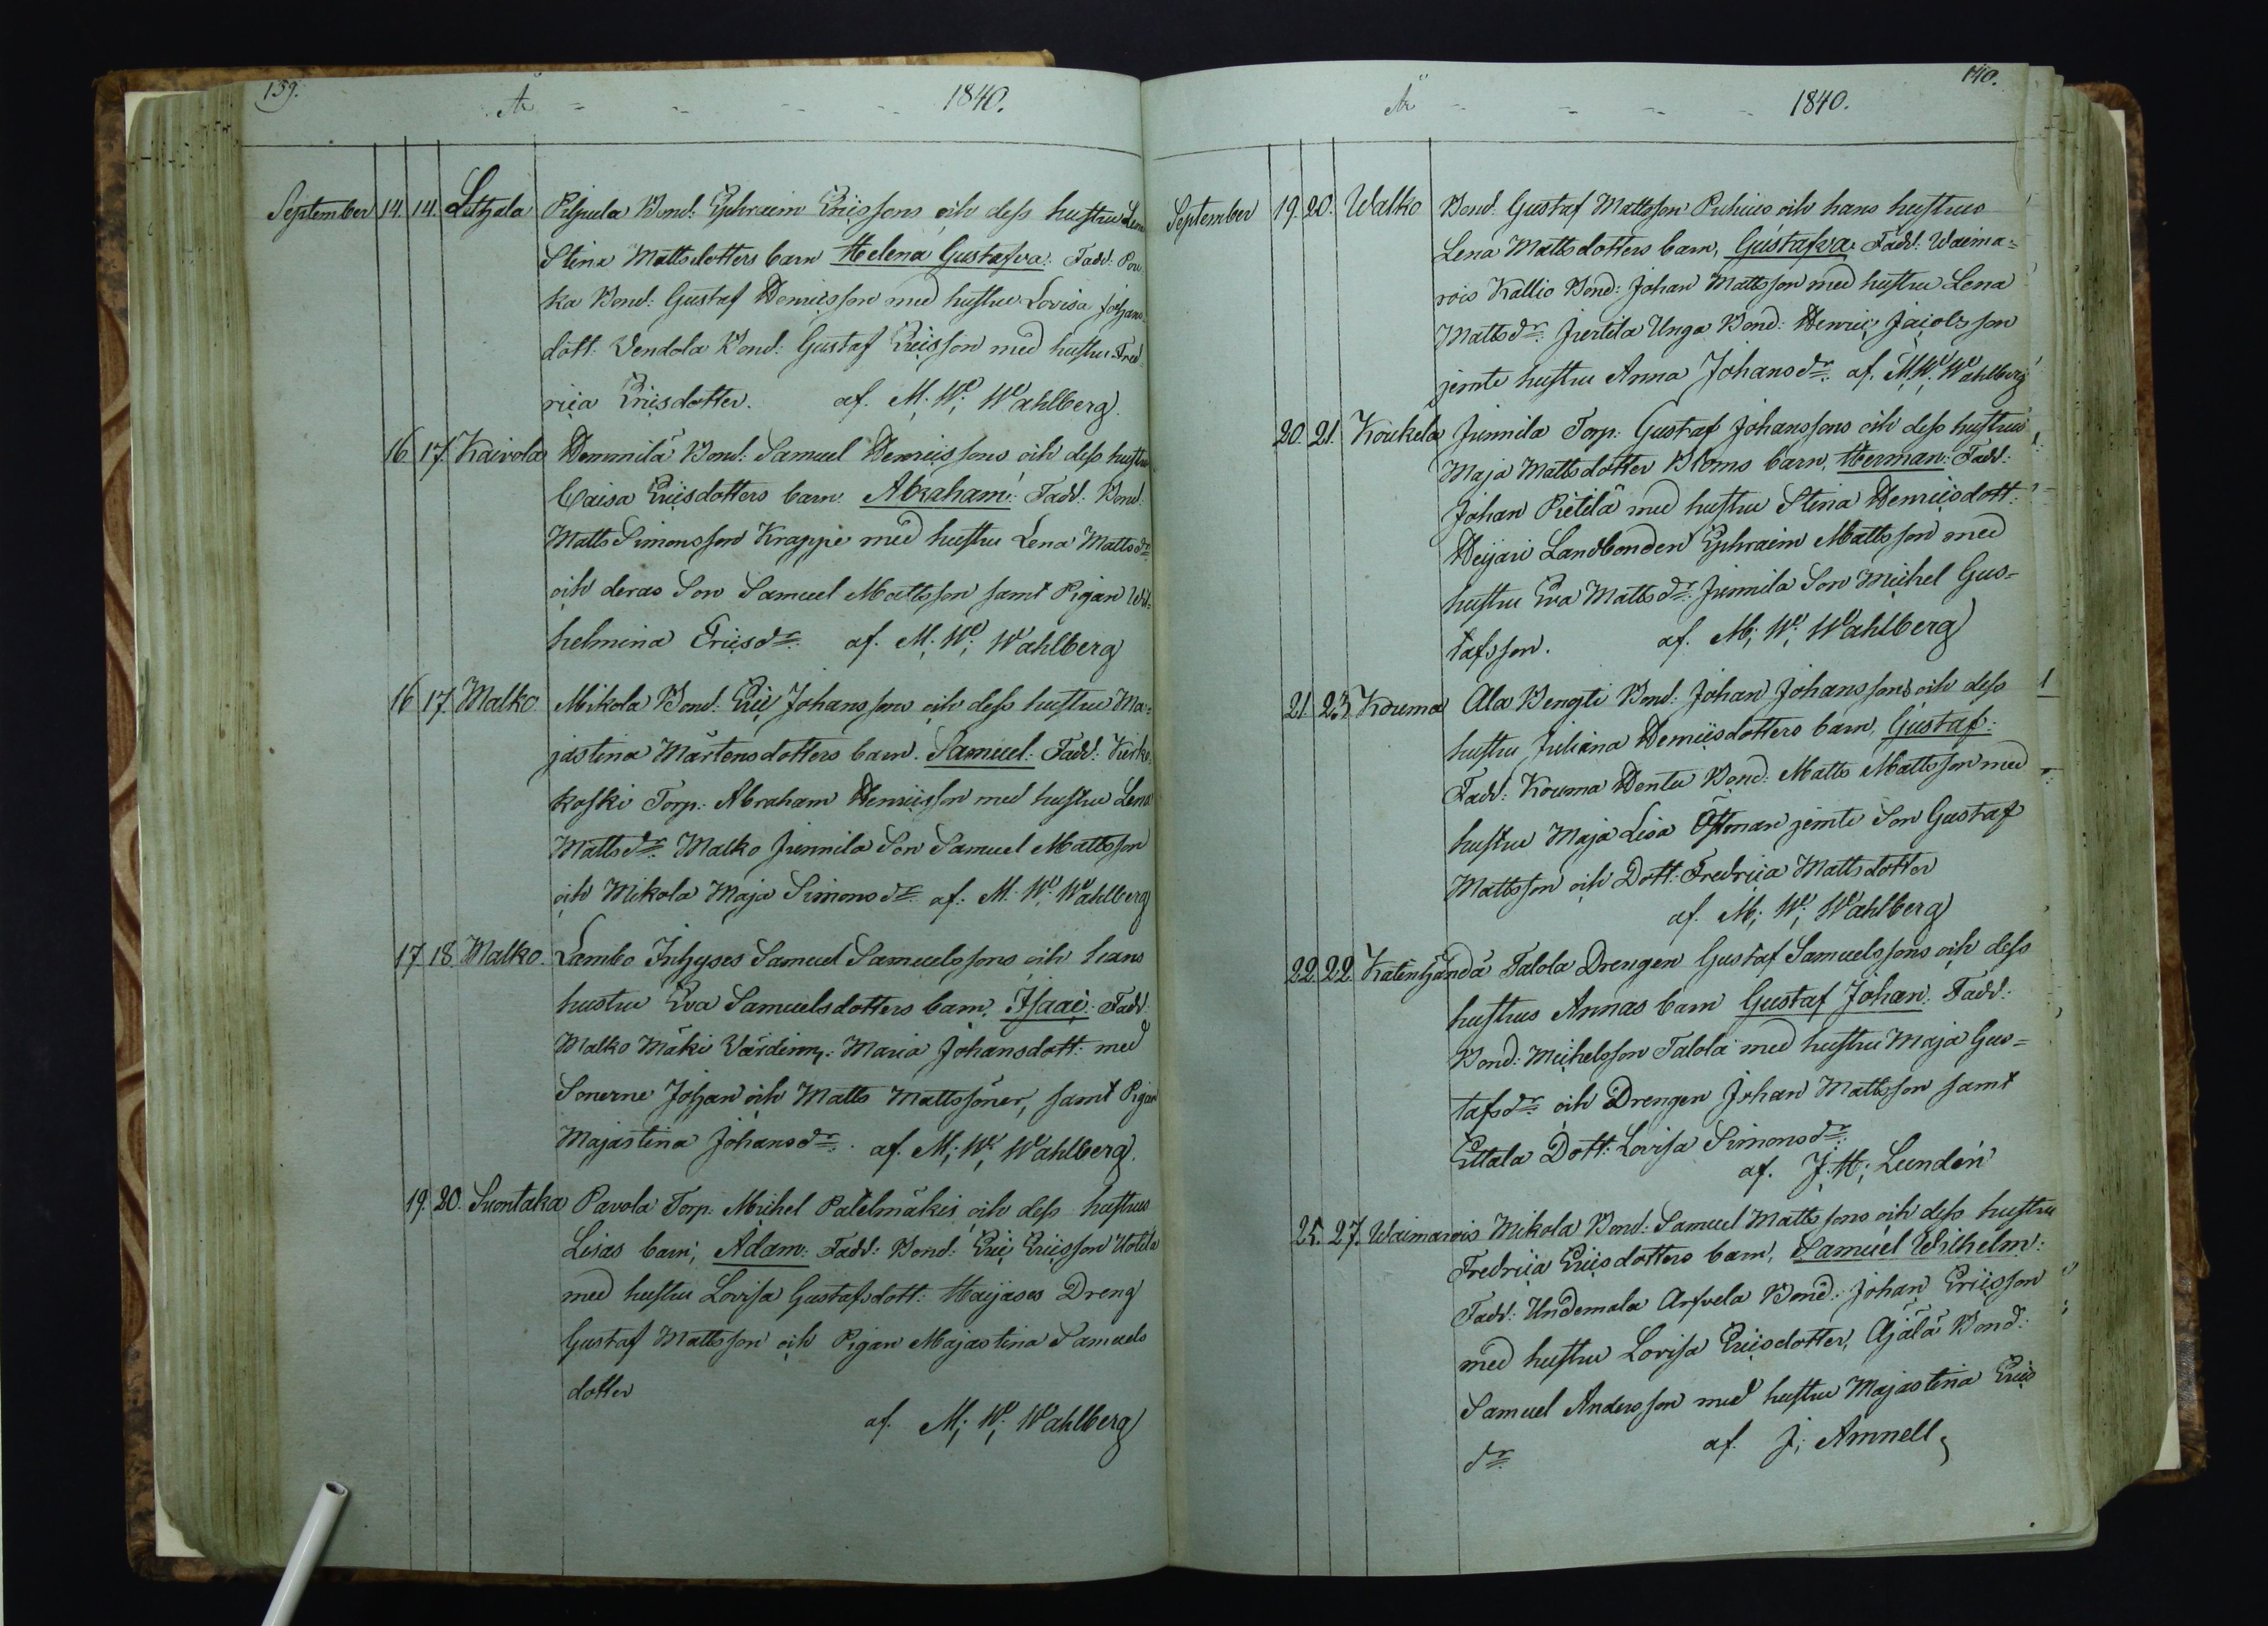 139.
År 1840.
September 14. 14. Letzala Pilpula Bond: Ephraim Ericssons och dess hustru Lena
Stina Mattsdotters barn Helena Gustafva: Fadd: Pou
ka Bond: Gustaf Henricsson med hustru Lovisa Johans
dott: Vendola Bond: Gustaf Ericsson med hustru Fred
rica Ericsdotter. af. M. W. Wahlberg
16 17. Kaivola Hemmilä Bond: Samuel Henricssons och dess hustru
Caisa Ericsdotters barn Abraham: Fadd: Bond:
Matts Simonsson Krappe med hustru Lena Mattsdr
och deras Son Samuel Mattsson samt Pigan Wil-
helmina Ericsdr: af. M. W. Wahlberg
16 17. Malko. Mikola Bond: Eric Johanssons och dess hustru Ma-
jastina Mårtensdotters barn. Samuel: Fadd: Kirko-
koski Torp: Abraham Henricsson med hustru Lena
Mattsdr: Malko Junnila Son Samuel Mattsson
och Mikola Maja Simonsdr: af: M. W. Wahlberg
17 18. Malko. Lambo Inhyses Samuel Samuelssons och hans
hustru Eva Samuelsdotters barn. Isaac: Fadd:
Malko Mäki Värdinn: Maria Johansdott: med
Sönerne Johan och Matts Mattssöner, samt Pigan
Majastina Johansdr: af. M. W. Wahlberg.
19. 20. Suontaka Pavola Torp: Michel Palelmäkis och dess hustrus
Lisas barn; Adam: Fadd: Bond: Eric Ericsson Uotila
med hustru Lovisa Gustafsdott: Haijases Dreng
Gustaf Mattsson och Pigan Majastina Samuels
dotter
af. M. W. Wahlberg
140.
År 1840.
September 19. 20. Walko Bond: Gustaf Mattsson Puhius och hans hustrus
Lena Mattsdotters barn, Gustafva: Fadd: Waima-
rois Kallio Bond: Johan Mattsson med hustru Lena
Mattsdr: Jvertila Unga Bond: Henric Jacobsson
jemte hustru Anna Johansdr: af. M. W. Wahlberg
20. 21. Koukela Junnila Torp: Gustaf Johanssons och dess hustrus
Maja Mattsdotter Bloms barn, Herman: Fadd:
Johan Pietilä med hustru Stina Henricsdott:
Heijari Landbonden Ephraim Mattsson med
hustru Eva Mattsdr: Junnila Son Michel Gus-
tafsson. af. M. W. Wahlberg
21. 23. Kouma Ala Bengti Bond: Johan Johanssons och dess
hustru Juliana Henricsdotters barn, Gustaf:
Fadd: Kouma Hentu Bond: Matts Mattsson med
hustru Maja Lisa Östman jemte Son Gustaf
Mattsson och Dott: Fredrica Mattsdotter
af. M. W. Wahlberg
22. 22. Katinhändä Talola Drengen Gustaf Samuelssons och dess
hustrus Annas barn Gustaf Johan: Fadd:
Bond: Michelsson Talola med hustru Maja Gus-
tafsdr: och Drengen Johan Mattsson samt
Ettala Dott: Lovisa Simonsdr:
af. J. H. Lundén
25. 27. Waimarois Mikola Bond: Samuel Mattssons och dess hustru
Fredrica Ericsdotters barn, Samuel Wilhelm:
Fadd: Undemala Arfvela Bond: Johan Ericsson
med hustru Lovisa Ericsdotter, Äjälä Bond:
Samuel Andersson med hustru Majastina Erics
dr: af. J. Amnell